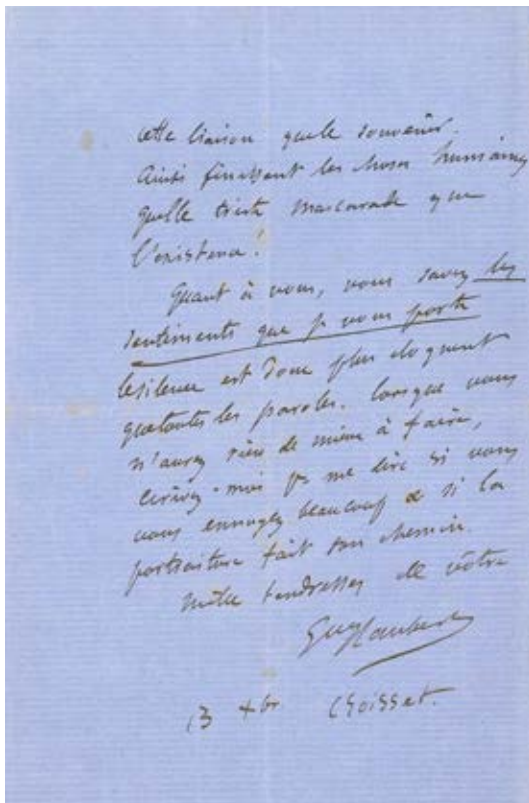 cette liaison que le souvenir.
Ainsi finissent les choses humaines
quelle triste mascarade que
l'existence!
Quant à vous, vous savez les
sentiments que je vous porte
le silence est donc plus éloquent
que toutes les paroles. lorsque vous
n'aurez rien de mieux à faire,
écrivez-moi pr me dire si vous
vous ennuyez beaucoup & si la
portraiture fait son chemin.
mille tendresses de vôtre
Gve Flaubert
13 Xbr Croisset.